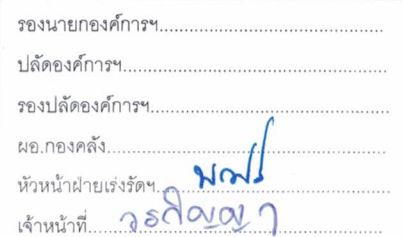 รองนายกองค์การฯ....................................................
ปลัดองค์การฯ................................................................
รองปลัดองค์การฯ.........................................................
ผอ.กองคลัง....................................................................
หัวหน้าฝ่ายเร่งรัดฯ........................................................
เจ้าหน้าที่.....วรกัญญา